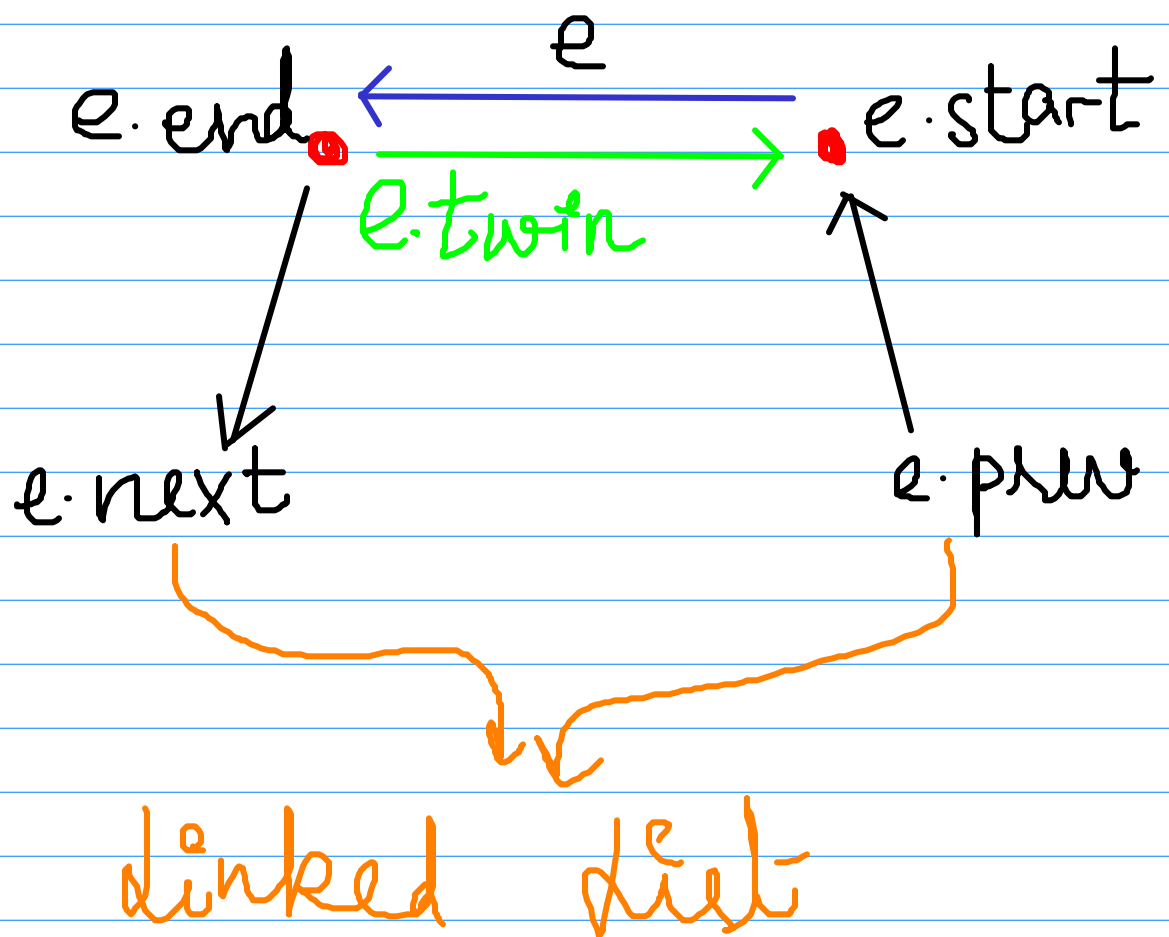 e
e.end
e.start
e.twin
e.next
e.prev
Linked List